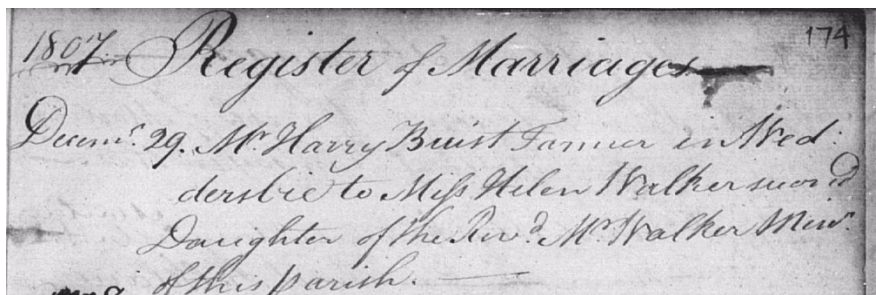 1807 Register of Marriages 174
Decemr. 29. Mr. Harry Buist Farmer in Wed:
dersbie to Miss Helen Walker second
Daughter of the Revd. Mr. Walker Minr.
of this parish.